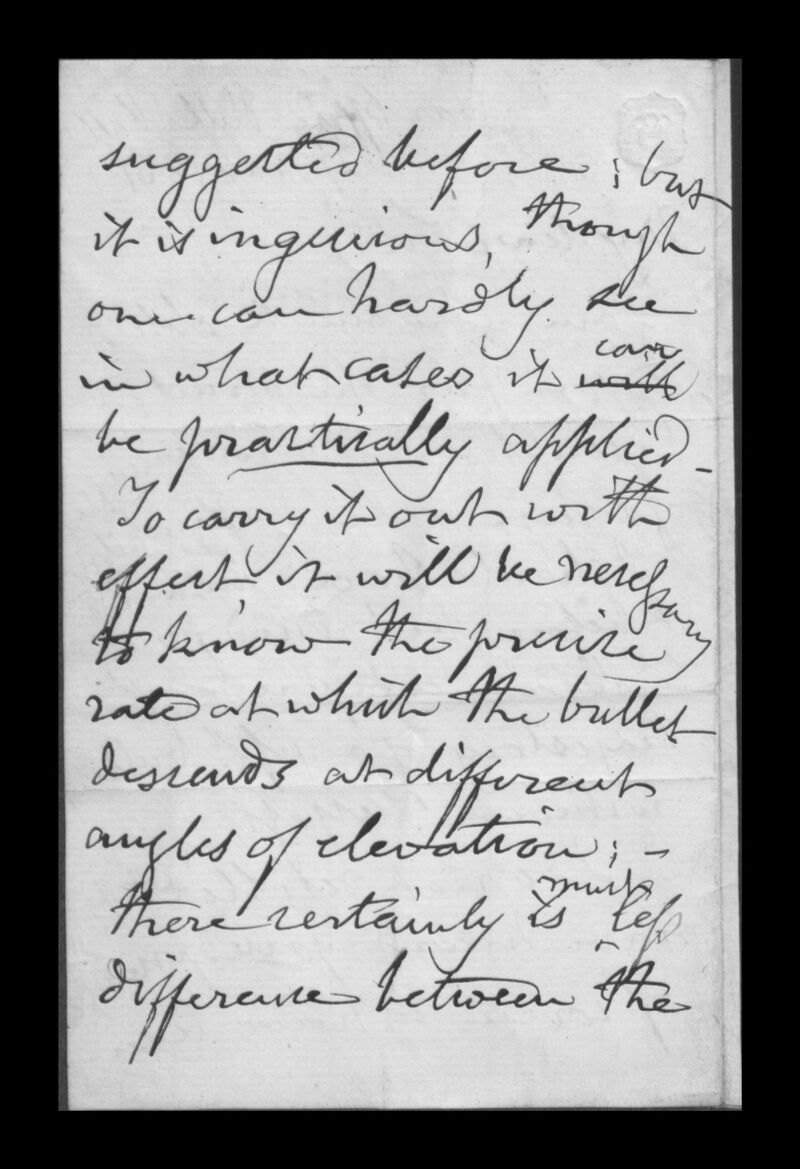 suggested before; but
it is ingenious, though
one can hardly see
in what cases it will can
be practically applied -
To carry it out with
effect it will be necessary
to know the precise
rate at which the bullet
descends at different
angles of elevation; -
there certainly is much less
difference between the